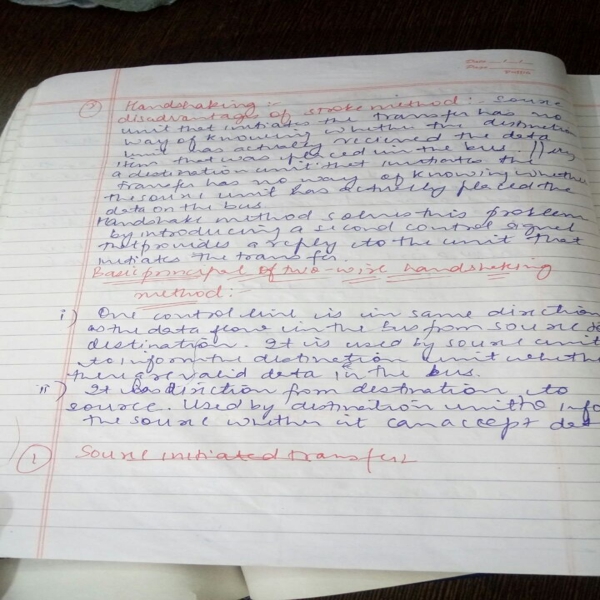 ② Handshaking :-
disadvantages of stroke method : source
unit that initiates the transfer has no
way of knowing whether the destination
unit has actually received the data
item that was placed in the bus. ||ly
a destination unit that initiates the
transfer has no way of knowing whether
the source unit has actually placed the
data on the bus
Handshake method solves this problem
by introducing a second control signal
that provides a reply to the unit that
initiates the transfer.
Basic principal of two-wire handshaking
method :
i) One control line is in same direction
as the data flow in the bus from source to
destination. It is used by source unit
to inform the destination unit whether
there are valid data in the bus.
ii) It is direction from destination to
source. Used by destination unit to info
the source whether it can accept dat
① Source initiated transfer